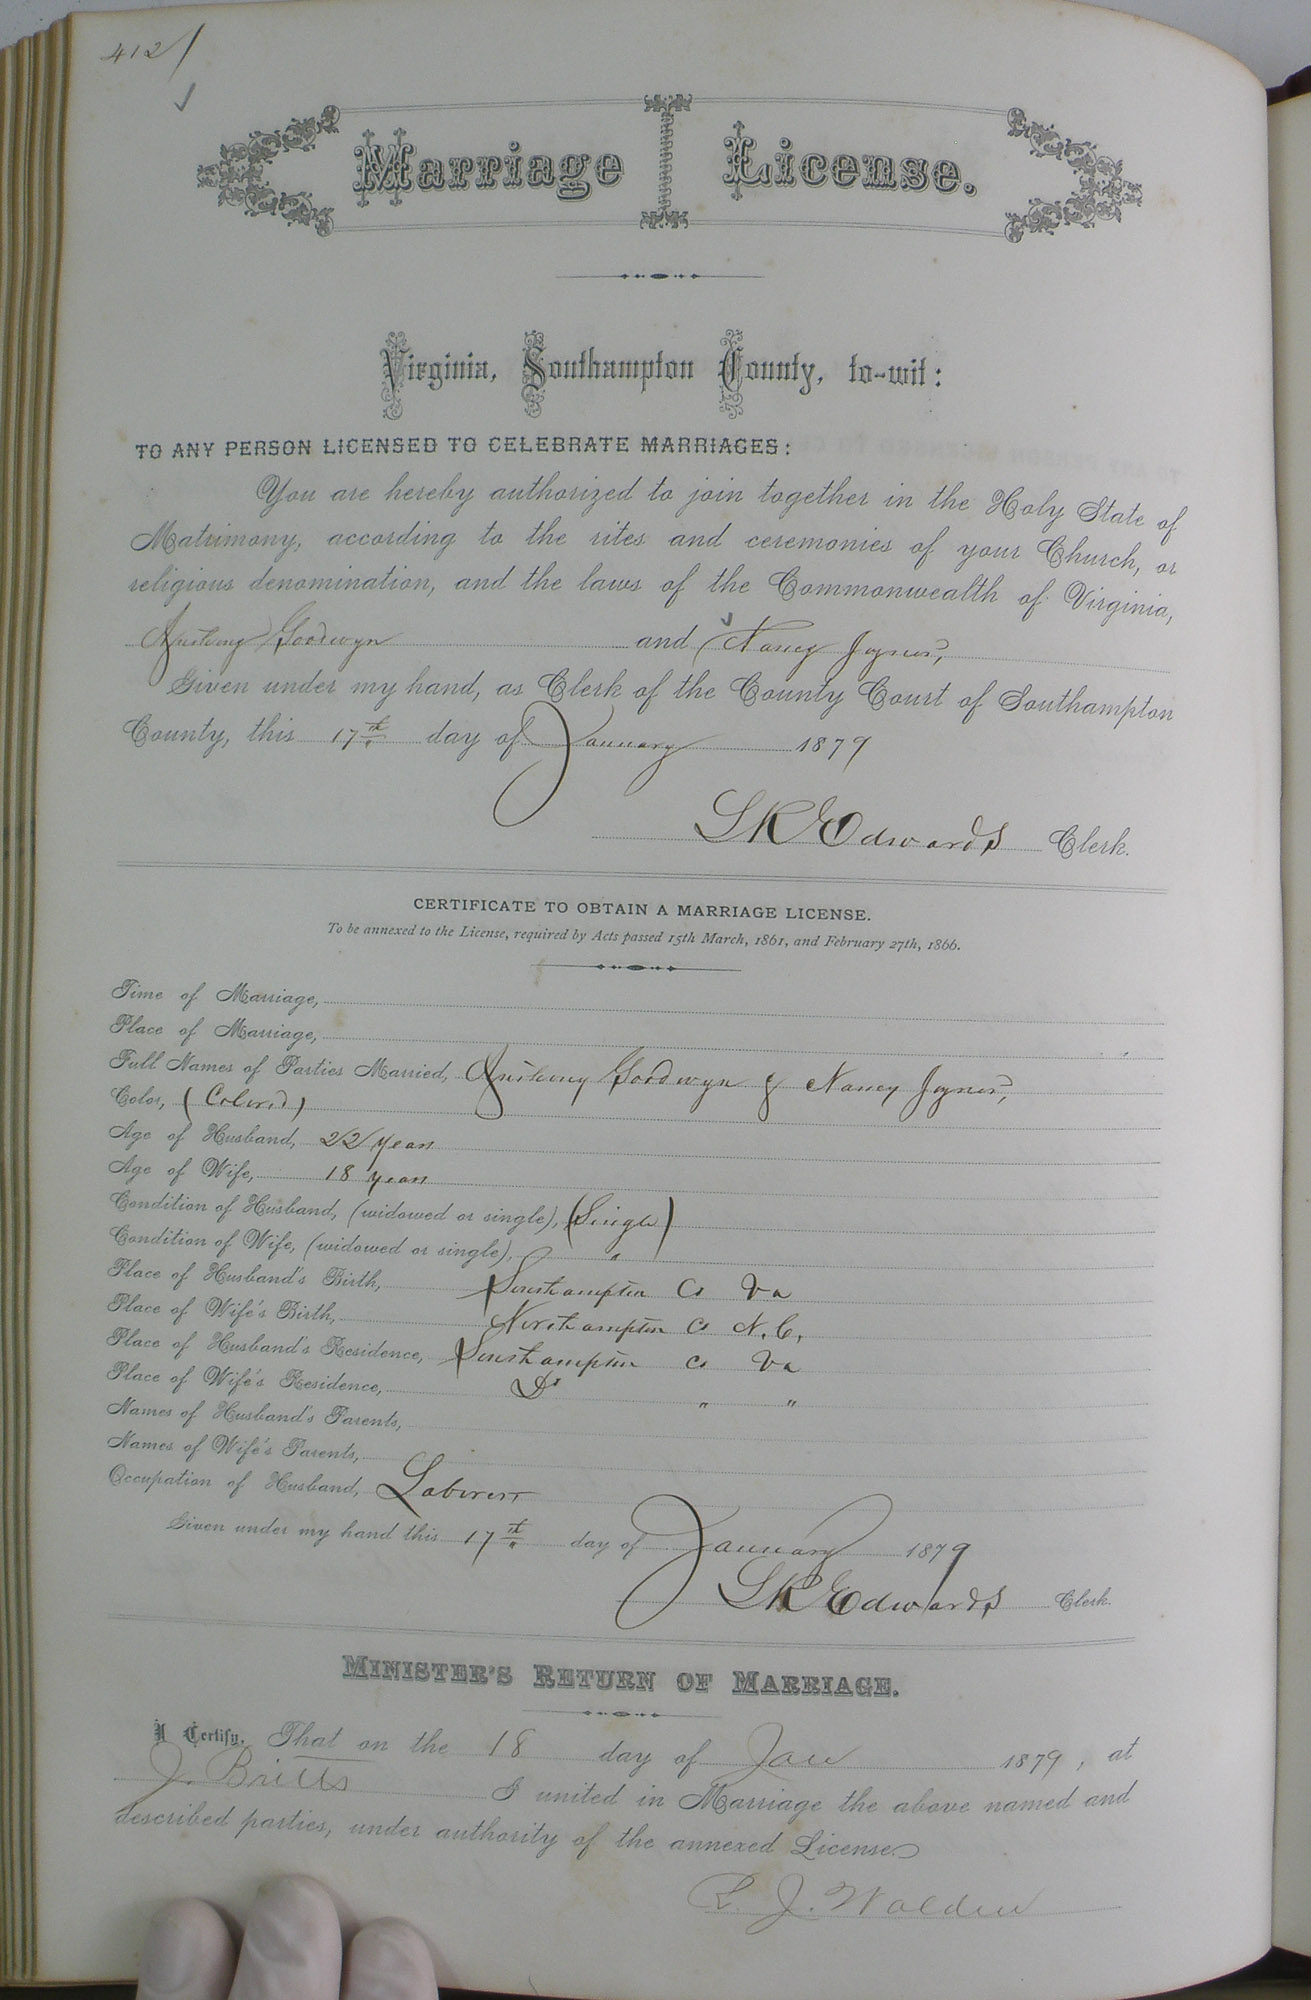 412
Marriage License.
Virginia, Southampton County, to-wit:
TO ANY PERSON LICENSED TO CELEBRATE MARRIAGES:
You are hereby authorized to join together in the Holy State of
Matrimony, according to the rites and ceremonies of your Church, or
religious denomination, and the laws of the Commonwealth of Virginia,
Anthony Goodwyn and Nancy Joyner,
Given under my hand, as Clerk of the County Court of Southampton
County, this 17th day of January 1879
L R Edwards Clerk.
CERTIFICATE TO OBTAIN A MARRIAGE LICENSE.
To be annexed to the License, required by Acts passed 15th March, 1861, and February 27th, 1866.
Time of Marriage,
Place of Marriage,
Full Names of Parties Married, Anthony Goodwyn & Nancy Joyner,
Color, (Colored)
Age of Husband, 22 years
Age of Wife, 18 years
Condition of Husband, (widowed or single), (Single)
Condition of Wife, (widowed or single), "
Place of Husband's Birth, Southampton Co Va
Place of Wife's Birth, Northampton Co N.C.
Place of Husband's Residence, Southampton Co Va
Place of Wife's Residence, Do " "
Names of Husband's Parents,
Names of Wife's Parents,
Occupation of Husband, Laborer
Given under my hand this 17th day of January 1879
L R Edwards Clerk.
MINISTER'S RETURN OF MARRIAGE.
I Certify, That on the 18 day of Jan 1879, at
J. Britts I united in Marriage the above named and
described parties, under authority of the annexed License
R. J. Walden